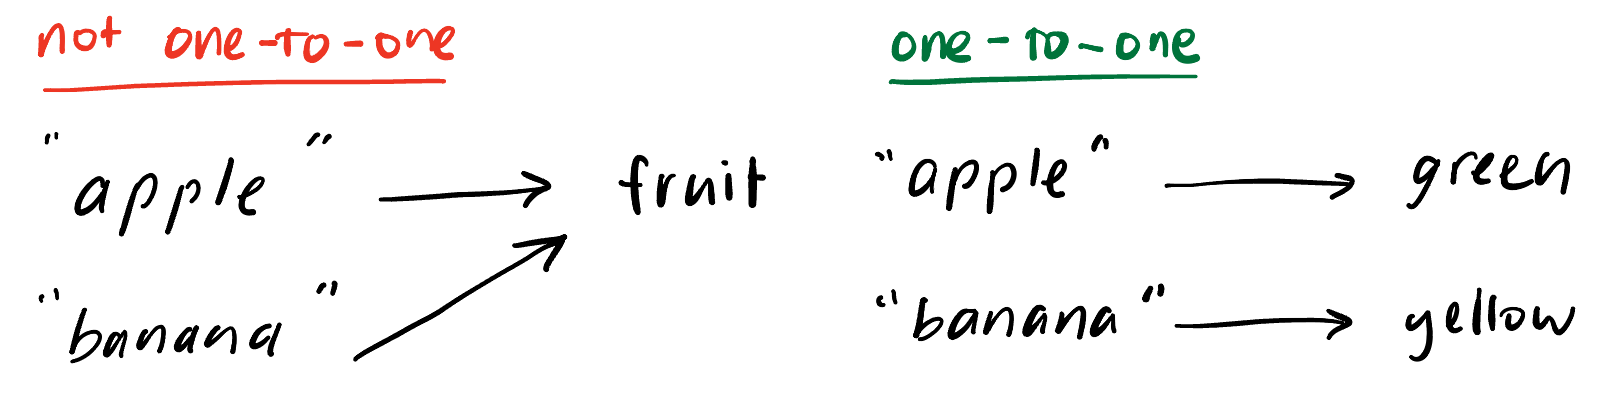 not one-to-one
"apple" fruit
"banana"
one-to-one
"apple" green
"banana" yellow